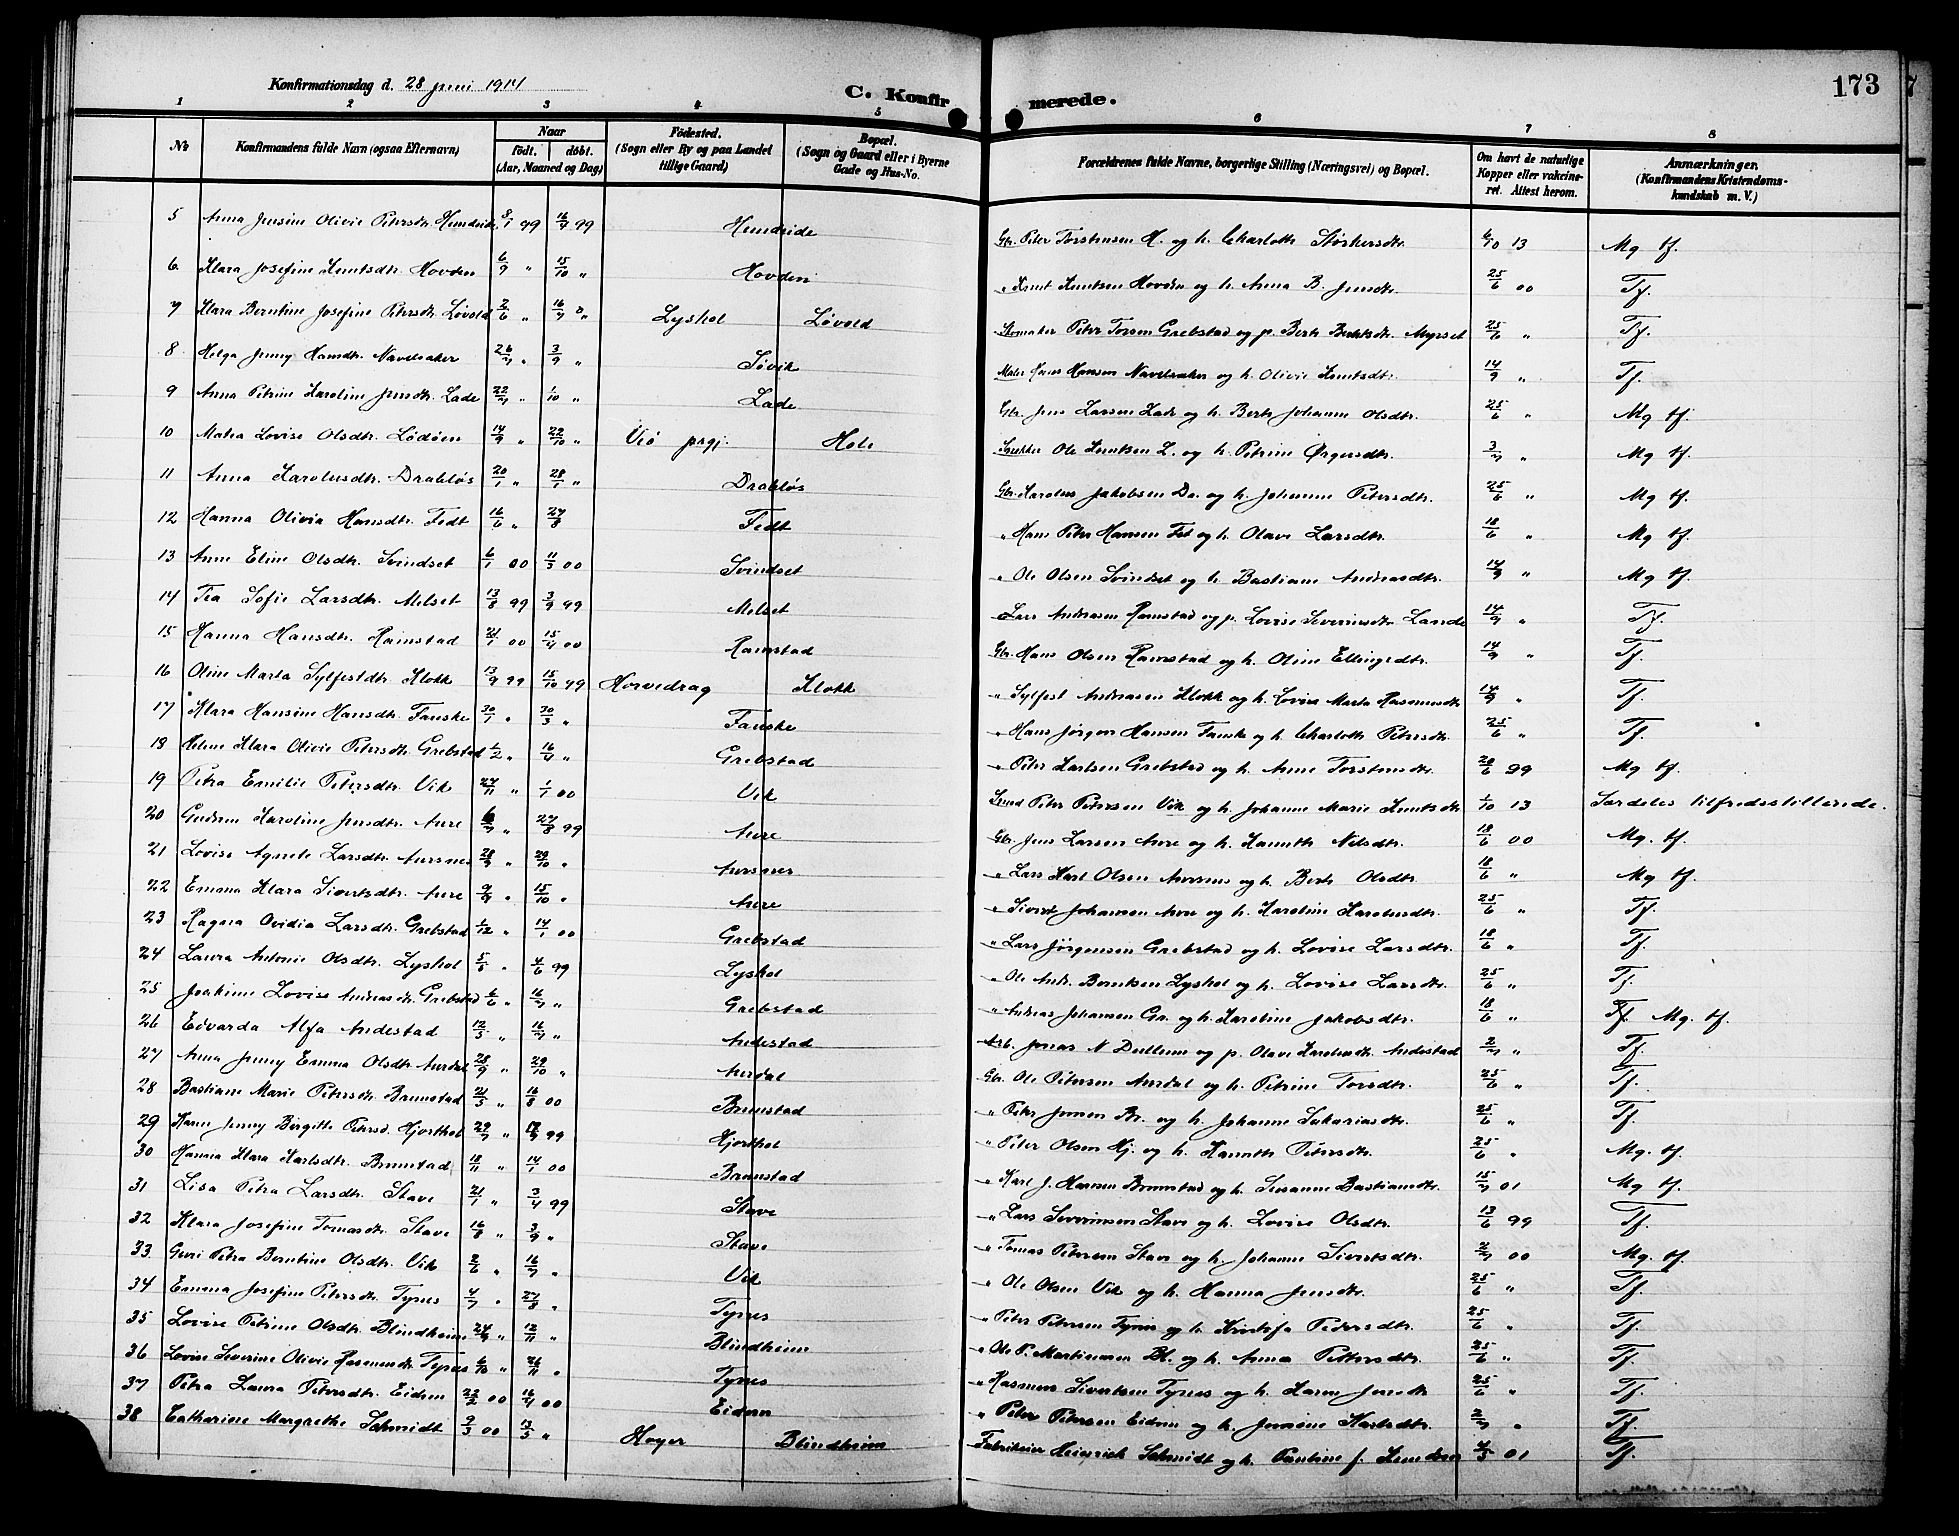 Konfirmationsdag d. 28 juni 1914
C. Konfirmerede.
173
1 2 3 4 5 6 7 8
No
Konfirmandens fulde Navn (ogsaa Efternavn)
Naar
født. døbt.
(Aar, Maaned og Dag)
Fødested.
(Sogn eller By og paa Landet tillige Gaard)
Bopæl.
(Sogn og Gaard eller i Byerne Gade og Hus-No.
Forældrenes fulde Navne, borgerlige Stilling (Næringsvei) og Bopæl.
Om havt de naturlige Kopper eller vakcineret. Attest herom.
Anmærkninger. (Konfirmandens Kristendomskundskab m. V.)
5 Anna Jensine Olivie Petersdtr. Hundeide 99 16/7 99 Hundeide Gbr. Peter Torstensen H. og h. Charlotte 13 Mg tf.
6 Klara Josefine Knutsdtr. Hovden 6/9 " 15/10 " Hovden " Knut Knutsen Hovden og h. Anna B. Jensdtr. 25/6 00 Tf.
7 Klara Berntine Josefine Petersdtr. Løvold 2/6 " 16/7 " Lyshol Løvold Peter Grebstad og p. Myrset 25/6 " Tf.
8 Helga Jenny Hansdtr. Navelsaker 26/7 " 3/9 " Søvik Maler Hans Hansen Navelsaker og h. Olivie Knutsdtr. 14/9 " Tf.
9 Anna Petrine Karoline Jensdtr. Lade 22/7 " 1/10 " Lade Gbr. Jens Larsen Lade og h. Berte Johanne Olsdtr. 25/6 " Mg tf.
10 Matea Lovise Olsdtr. Lødøen 14/9 " 22/10 " Veø prgj. Hole Snekker Ole Knutsen L. og h. Petrine 3/7 " Mg tf.
11 Anna Karolusdtr. Drabløs 20/1 " 28/1 " Drabløs Gbr. Karolus Jakobsen Dr. og h. Johanne Petersdtr. 25/6 " Mg tf.
12 Hanna Olivia Hansdtr. Fedt 16/6 " 27/8 Fedt " Hans Peter Hansen Fet og h. Olave Larsdtr. 18/6 " Mg tf.
13 Anne Eline Olsdtr. Svindset 6/1 00 11/3 00 Svindset " Ole Olsen Svindset og h. Bastiane Andreasdtr. 14/9 " Mg tf.
14 Tea Sofie Larsdtr. Melset 13/8 99 3/9 99 Melset Lars Andreasen Ramstad og p. Lovise Severinsdtr. Lande 14/9 " Tf.
15 Hanna Hansdtr. Ramstad 21/1 00 15/4 00 Ramstad Gbr. Hans Olsen Ramstad og h. Oline Ellingsdtr. 14/9 " Tf.
16 Oline Marta Sylfestdtr. Klokk 13/9 99 15/10 99 Horvedrag Klokk " Sylfest Andreasen Klokk og h. Lovise Marta Rasmusdtr. 14/9 " Tf.
17 Klara Hansine Hansdtr. Fauske 30/1 " 30/3 " Fauske " Hans Jørgen Hansen Fauske og h. Charlotte Petersdtr. 25/6 " Tf.
18 Helene Klara Olivie Petersdtr. Grebstad 1/2 " 16/4 " Grebstad " Peter Karlsen Grebstad og h. Anne Torstensdtr. 20/6 99 Mg tf.
19 Petra Emilie Petersdtr. Vik 27/11 " 1/1 00 Vik Peter Petersen Vik og h. Johanne Marie Knutsdtr. 1/10 13 Særdeles tilfredsstillende.
20 Gudrun Karoline Jensdtr. Aure 6/7 " 27/8 99 Aure Gbr. Jens Larsen Aure og h. Hannette Nilsdtr. 18/6 00 Mg. tf.
21 Lovise Agnete Larsdtr. Aursnes 28/9 " 29/10 " Aursnes " Lars Karl Olsen Aursnes og h. Berte Olsdtr. 18/6 " Mg tf.
22 Emma Klara Sivertsdtr. Aure 9/9 " 15/10 " Aure " Sivert Johansen Aure og h. Karoline Karolusdtr. 25/6 " Tf.
23 Ragna Ovidia Larsdtr. Grebstad 1/12 " 14/1 00 Grebstad " Lars Jørgensen Grebstad og h. Lovise Larsdtr. 18/6 " Tf.
24 Laura Antonie Olsdtr. Lyshol 5/5 " 4/6 99 Lyshol " Ole Andr. Berntsen Lyshol og h. Lovise Larsdtr. 25/6 " Tf.
25 Joakime Lovise Andreasdtr. Grebstad 6/6 " 16/7 " Grebstad " Andreas Johansen Gr. og h. Karoline Jakobsdtr. 18/6 " Tf. Mg. tf.
26 Edvarda Alfa Andestad 12/5 " 16/7 " Andestad Arb. Jonas N Dullum og p. Olave Karolusdtr. Andestad 2/7 " Tf.
27 Anna Jenny Emma Olsdtr. Aurdal 28/9 " 29/10 " Aurdal Gbr. Ole Petersen Aurdal og h. Petrine Torsdtr. 25/6 " Tf.
28 Bastiane Marie Petersdtr. Brunstad 21/5 " 16/8 00 Brunstad " Peter Jonsen Br. og h. Johanne Sakariasdtr. 25/6 " Tf.
29 Karen Jenny Birgitte Petersd. Hjorthol 29/7 " 99 Hjorthol " Peter Olsen Hj. og h. Hannette Petersdtr. 25/6 " Mg. tf.
30 Hanna Klara Karlsdtr. Brunstad 18/11 " 14/1 00 Brunstad " Karl J. Hansen Brunstad og h. Susanne Bastiansdtr. 15/7 01 Mg tf.
31 Lisa Petra Larsdtr. Stave 21/1 " 3/4 99 Stave " Lars Severinsen Stave og h. Lovise Olsdtr. 13/6 99 Tf.
32 Klara Josefine Tomasdtr. Stave 16/8 " 3/9 " Stave " Tomas Petersen Stave og h. Johanne Sivertsdtr. 2/7 00 Mg. tf.
33 Guri Petra Berntine Olsdtr. Vik 2/6 " 16/7 " Vik " Ole Olsen Vik og h. Hanna Jensdtr. 25/6 " Tf.
34 Emma Josefine Petersdtr. Tynes 4/7 " 27/8 " Tynes " Peter Petersen Tynes og h. Petersdtr. 25/6 " Tf.
35 Lovise Petrine Olsdtr. Blindheim 24/9 " 12/11 " Blindheim " Ole P. Martinusen Bl. og h. Anna Pettersdtr. 25/6 " Tf.
36 Lovise Severine Olivie Rasmusdtr. Tynes 6/10 " 26/11 " Tynes " Rasmus Sivertsen Tynes og h. Karen Jensdtr 25/6 " Tf.
37 Petra Laura Petersdtr. Eidem 22/2 00 16/4 00 Eidem " Peter Petersen Eidem og h. Karlsdtr. 2/7 " Tf.
38 Catharine Margrethe Schmidt 9/3 00 13/5 " Hoyer Blindheim Fabrikeier Heinrich Schmidt og h. Pauline f. 01 Tf.